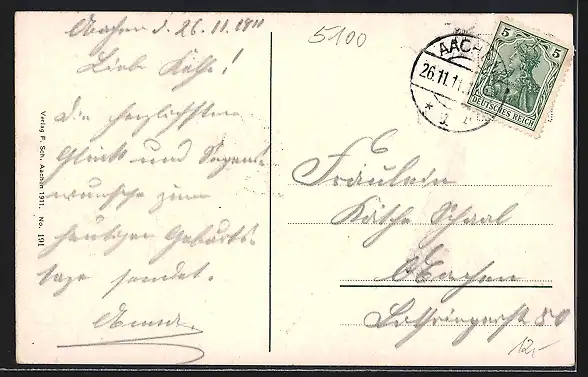 Aachen d. 26.11.1911
Liebe Käthe!
Die herzlichsten
Glück und Segens-
wünsche zum
heutigen Geburts-
tage sendet.
Anna.
Verlag P. Sch., Aachen 1911. No. 191
5100
AACHEN
26.11.11.
5 5
DEUTSCHES REICH
Fräulein
Käthe Schaal
Aachen
Lothringerst 80
12,-